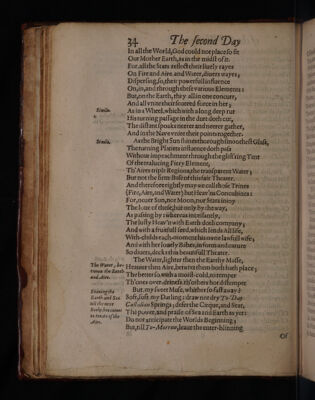 34 The second Day
In all the World, God could not place so fit
Our Mother Earth, as in the midst of it.
For, all the Stars reflect their lively rayes
On Fire and Aire, and Water, divers wayes;
Dispersing, so, their powerfull influence
On, in, and through these various Elements:
But, on the Earth, they all in one concurr,
And all unite their severed force in her;
Simile.
As in a Wheel, which with a long deep rut
His turning passage in the durt doth cut,
The distant spoaks neerer and neerer gather,
And in the Nave unite their points together.
Simile.
As the Bright Sun shines thorough smoothest Glass,
The turning Planets influence doth pass
Without impeachment through the glistering Tent
Of the tralucing Fiery Element,
Th'Aires triple Regions, the transparent Water;
But not the firm Base of this fair Theater.
And therefore rightly may we call those Trines
(Fire, Aire, and Water) but Heav'ns Concubines:
For, never Sun, nor Moon, nor Stars injoy
The love of these, but only by the way,
As passing by: whereas incessantly,
The lusty Heav'n with Earth doth company;
And with a fruitfull seed, which lends All life,
With-childes each moment his own lawfull wife;
And with her lovely Babes, in form and nature
So divers, decks this beautifull Theater.
The Water, be-
tween the Earth
and Aire.
The Water, lighter than the Earthy Mass,
Heavier than Aire, betwixt them both hath place;
The better so, with a moist-cold, to temper
Th'ones over-driness, th'others hot distemper.
Leaving the
Earth and Sea
till the next
Aire.
But, my sweet Muse, whither so fast away?
Soft, soft my Darling: draw not dry To-Day
Castalian Springs; defer the Cirque, and Seat,
The power, and praise of Sea and Earth as yet:
Do not anticipate the Worlds Beginning;
But, till To-Morrow, leave the enter-blinning
Of